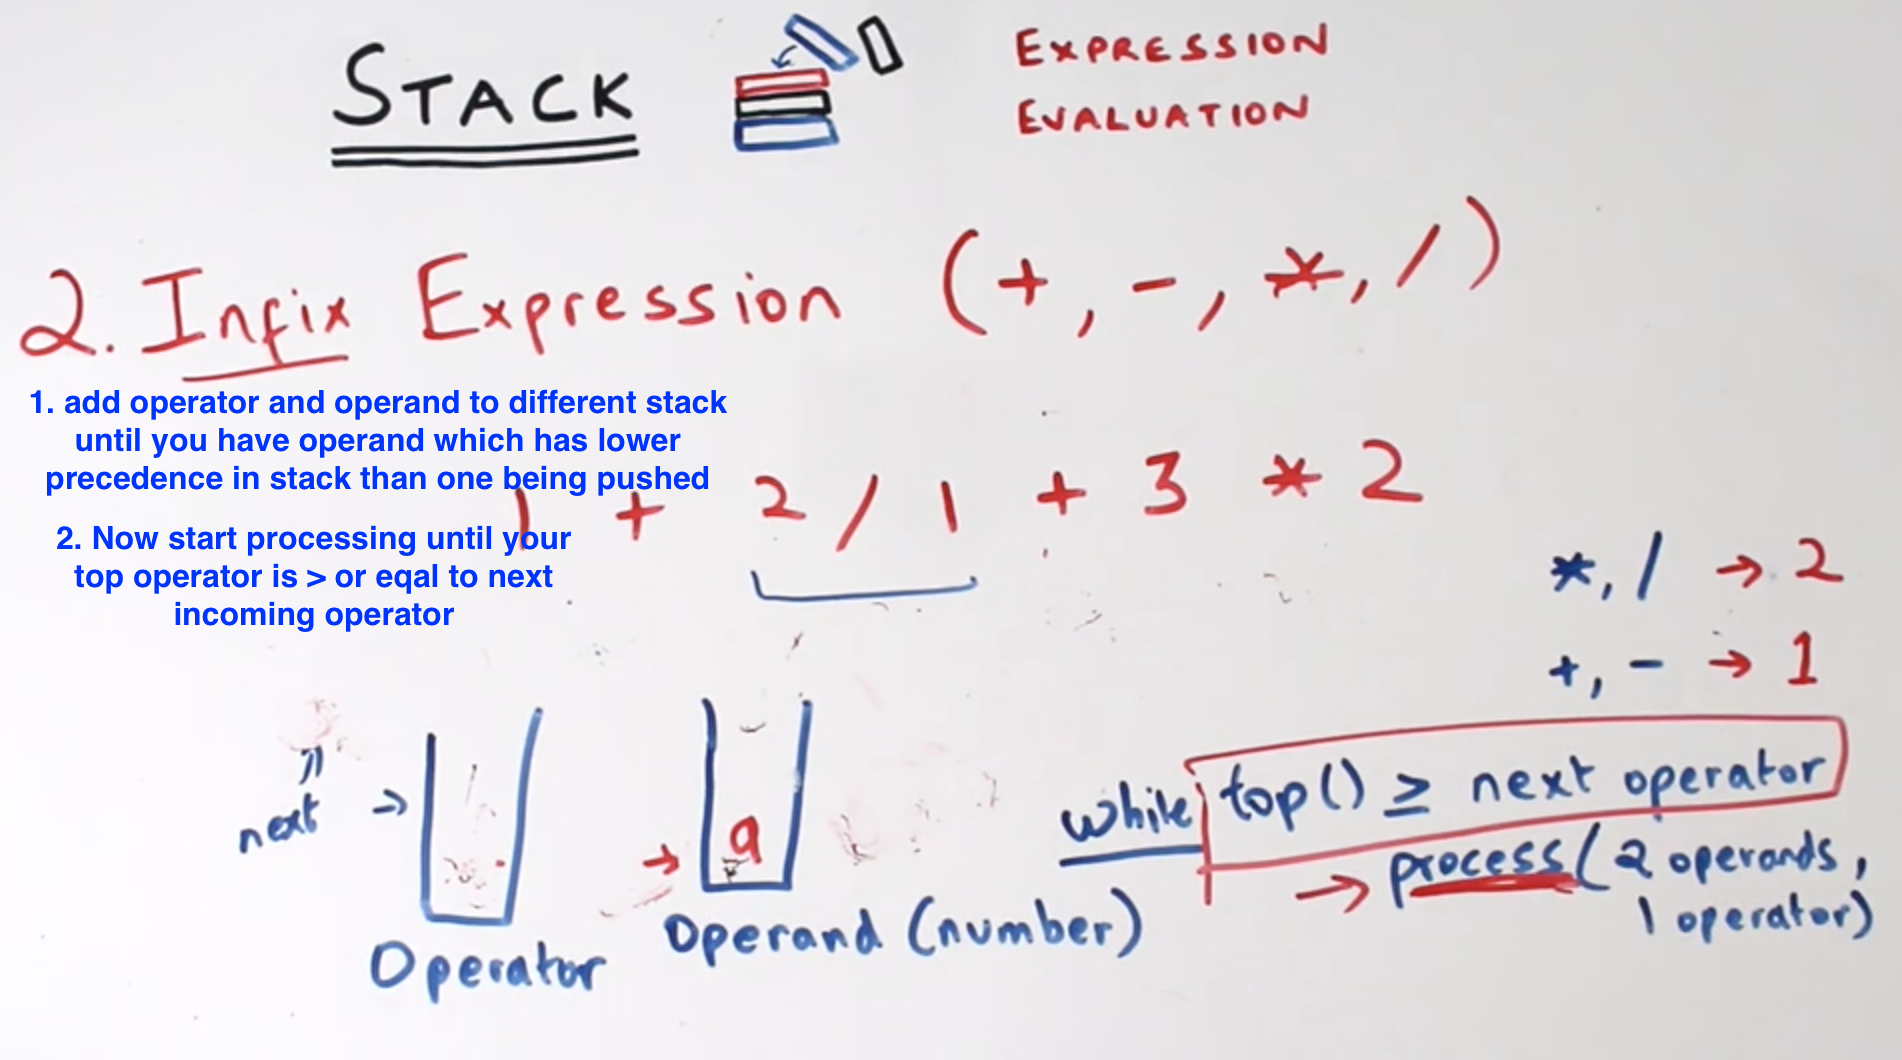 STACK
EXPRESSION
EVALUATION
2. Infix Expression (+, -, *, /)
1. add operator and operand to different stack
until you have operand which has lower
precedence in stack than one being pushed
1 + 2 / 1 + 3 * 2
2. Now start processing until your
top operator is > or eqal to next
incoming operator
*, / → 2
+, - → 1
next →
→ 9
Operator
Operand (number)
while top() ≥ next operator
→ process(2 operands,
1 operator)